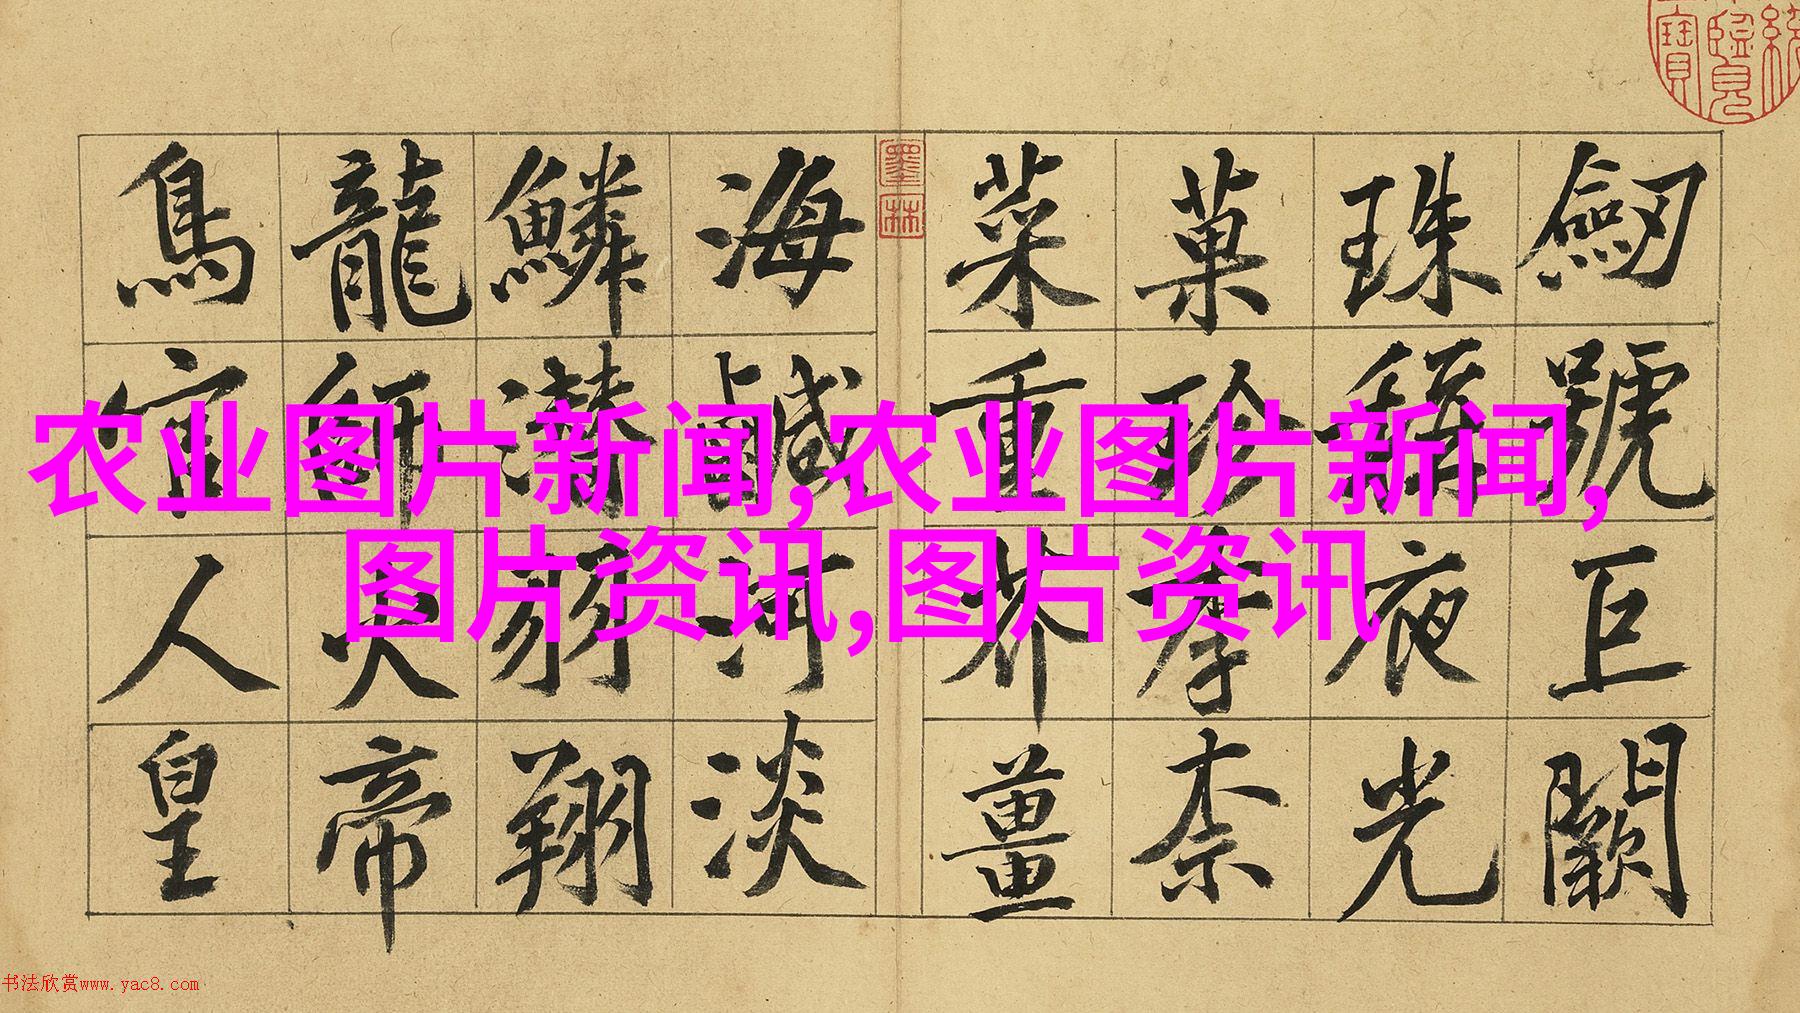 劒號巨闕
珠稱夜光
菓珍李柰
菜重芥薑
墨林
海鹹河淡
鱗潛羽翔
龍師火帝
鳥官人皇
农业图片新闻,农业图片新闻,
图片资讯,图片资讯
书法欣赏www.yac8.com